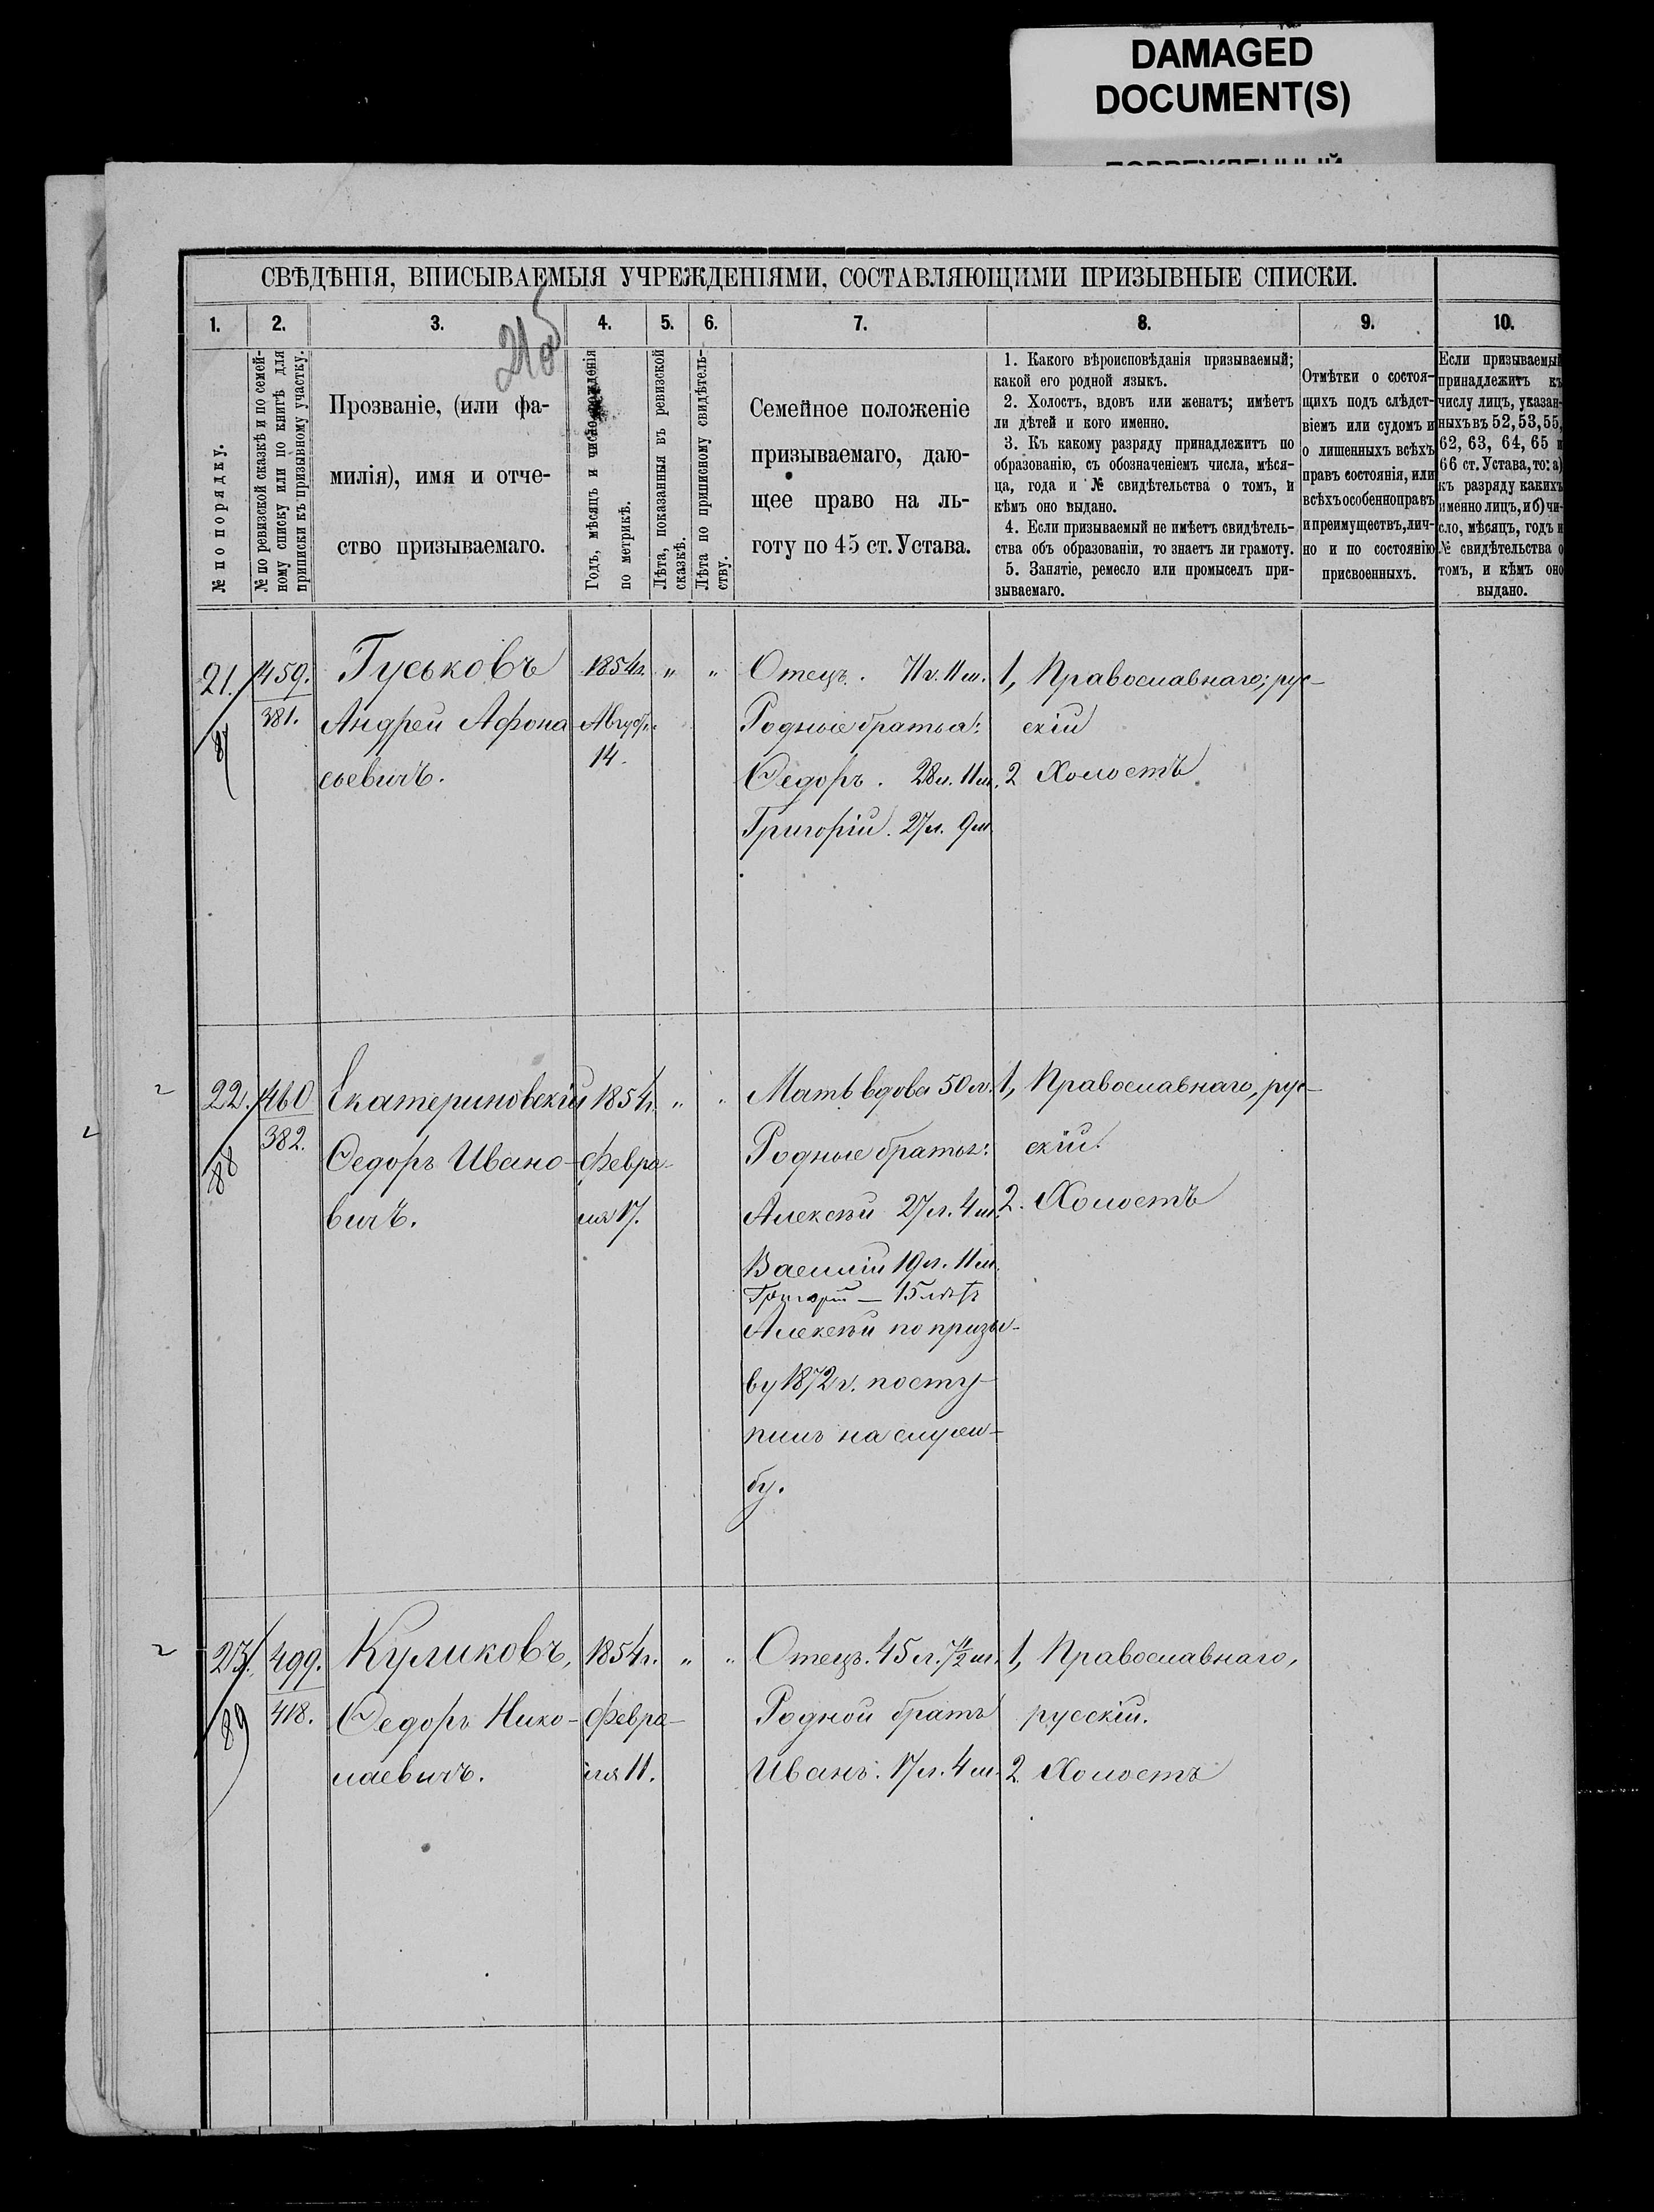 DAMAGED
DOCUMENT(S)
СВѢДѢНІЯ, ВПИСЫВАЕМЫЯ УЧРЕЖДЕНІЯМИ, СОСТАВЛЯЮЩИМИ ПРИЗЫВНЫЕ СПИСКИ.
1.
2.
3.
4.
5.
6.
7.
8.
9.
10.
№ по порядку.
№ по ревизской сказкѣ и по семей-
ному списку или по книгѣ для
приписки къ призывному участку.
Прозваніе, (или фа-
милія), имя и отче-
ство призываемаго.
Годъ, мѣсяцъ и число рожденія
по метрикѣ.
Лѣта, показанныя въ ревизской
сказкѣ.
Лѣта по приписному свидѣтель-
ству.
Семейное положеніе
призываемаго, даю-
щее право на ль-
готу по 45 ст. Устава.
1. Какого вѣроисповѣданія призываемый;
какой его родной языкъ.
2. Холостъ, вдовъ или женатъ; имѣетъ
ли дѣтей и кого именно.
3. Къ какому разряду принадлежитъ по
образованію, съ обозначеніемъ числа, мѣся-
ца, года и № свидѣтельства о томъ, и
кѣмъ оно выдано.
4. Если призываемый не имѣетъ свидѣтель-
ства объ образованіи, то знаетъ ли грамоту.
5. Занятіе, ремесло или промыселъ при-
зываемаго.
Отмѣтки о состоя-
щихъ подъ слѣдст-
віемъ или судомъ и
о лишенныхъ всѣхъ
правъ состоянія, или
всѣхъ особенно правъ
и преимуществъ, лич-
но и по состоянію
присвоенныхъ.
Если призываемый
принадлежитъ къ
числу лицъ, указан-
ныхъ въ 52, 53, 55,
62, 63, 64, 65 и
66 ст. Устава, то: а)
къ разряду какихъ
именно лицъ, и б) чи-
сло, мѣсяцъ, годъ и
№ свидѣтельства о
томъ, и кѣмъ оно
выдано.
21.
87
459.
381.
Гуськовъ
Андрей Афона-
сьевичъ.
1854г.
Август.
14.
"
"
Отецъ. 71г. 11м.
Родные братья:
Ѳедоръ. 28л. 11м.
Григорій. 27л. 9м.
1, Православнаго; рус-
скій
2 Холостъ
22.
88
460
382.
Екатериновскій
Ѳедоръ Ивано-
вичъ.
1854г.
Февра-
ля 17.
"
"
Мать вдова 50л.
Родные братья:
Алексѣй 27л. 4м.
Василій 19л. 11м.
Григорій — 15 лѣтъ
Алексѣй по призы-
ву 1872г. посту-
пилъ на служ-
бу.
1, Православнаго, рус-
скій.
2. Холостъ
23.
89
499.
418.
Куликовъ,
Ѳедоръ Нико-
лаевичъ.
1854г.
Февра-
ля 11.
"
"
Отецъ. 45л. 7½м.
Родной братъ
Иванъ: 17л. 4м.
1, Православнаго,
русскій.
2. Холостъ